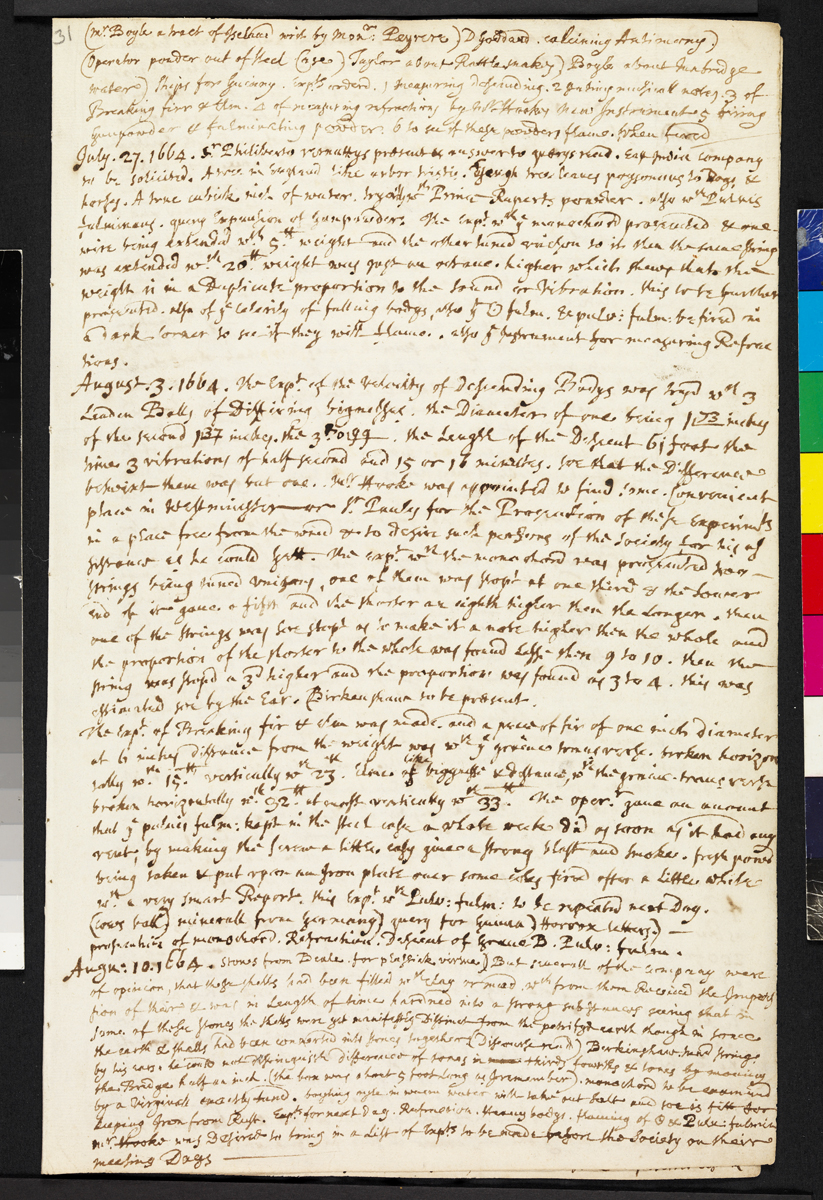 31
(Mr. Boyle a tract of Iseland writ by Monr. Peyrere) D Goddard. calcining Antimony.)
(Operator powder out of steel case) Taylor about Rattlesnakes) Boyle about Tunbridge
water) ships for Guinny. Expts orderd. 1 measuring descending. 2 musicall notes. 3 of
Breaking firr & Elm. 4 of measuring refractions by Mr Hooks new Instrument 5 firing
gunpowder & fulminating powder. 6 to see if these powders flame. when fired
July. 27. 1664. Sr Philiberto vernattys present & answer to querys read. East India company
to be solicited. A tree in England like arbor tristis. Eough tree leaves poysonous to Dogs &
horses. A true cubick inch of water. tryall wth Prince Ruperts powder. also wth Pulvis
fulminans. query Expansion of Gunpowder. The Expt. wth ye monochord prosecuted & one
wire being extended wth 5 th weight and the other tuned unison to it then the same string
was extended wth 20 th weight was just an octave. higher which shews that the
weight is in a Duplicate proportion to the sound or vibration. this to be further
prosecuted. also of ye celerity of falling bodys, also fulm. & pulv: fulm: be fired in
a dark corner to see if they will flame. also ye Instrument for measuring Refrac
tions.
August. 3. 1664. The Expt. of the velocity of Descending Bodys was tryd wth 3
Leaden Balls of Differing bignesses. the Diameter of one being 1 73 inches
of the second 1 37 inches. the 3d 0.99. the Length of the Descent 61 foot the
time 3 vibrations of half second and 15 or 16 minutes. soe that the Difference
betwixt them was but one. Mr Hooke was appointed to find some Convenient
place in westminster or St. Pauls for the Prosecution of these Experimts
in a place free from the wind & to desire such persons of the Society for his as
sistance as he could gett. The Expt. wth the monochord was prosecuted two
strings being tuned unisons, one of them was stopt at one third & the Lower
End of it gave a fifth and the shorter an eighth higher then the Longer. then
one of the strings was soe stopt as to make it a note higher then the whole and
the proportion of the shorter to the whole was found lesse then 9 to 10. then the
string was stopd a 3d higher and the proportion was found as 3 to 4. this was
estimated soe by the Ear. Birkenshaw to be present.
The Expt. of Breaking fir & elm was made. and a piece of fir of one inch diameter
at 6 inches distance from the weight was wth ye graine transverse. broken horizon
tally wth 15 th vertically wth 23 th. Elme of like biggnesse & distance, wth the graine transverse
broken horizontally wth 32 th at most vertically wth 33 th. The opertr gave an account
that ye pulvis fulm: kept in the steel case a whole week did as soon as it had any
vent, by making the screw a little easy give a strong blast and smoke. fresh powdr
being taken & put upon an Iron plate over some coles fired after a little while
wth a very smart Report. this Expt wth Pulv: fulm: to be repeated next Day.
(cows ball) minerall from Germany) query for Guinea) Horrox letters.)
prosecution of monochord. Refraction. Descent of Graue B. Pulv: fulm.
Augu: 10. 1664. stones from Beale. for plastick virtue) But severall of the company were
of opinion, that those shells had been filled wth clay or mud, wth from them Received the
tion of their & was in Length of time hardned into a strong substances seeing that in
some. of these stones the shells were yet manifestly Distinct from the petrifyd earth though in some
the earth & shells had been converted into stones together (Discourse read) Berkinshaw tund strings
by his ear. he could not distinguish difference of tones in third, fourths & tones by moving
the Bridge half an inch. (the box was about 5 foot long as I remember). monochord to be examind
by a virginall exactly tund. boyling oyle in warm water will take out salt and soe is fitt for
keeping Iron from Rust. Expt. for next Day. Refraction. Heavy bodys. flaming of & Pulv: fulmin
Mr. Hooke was desired to bring in a List of Expts to be made before the Society on their
meeting Days